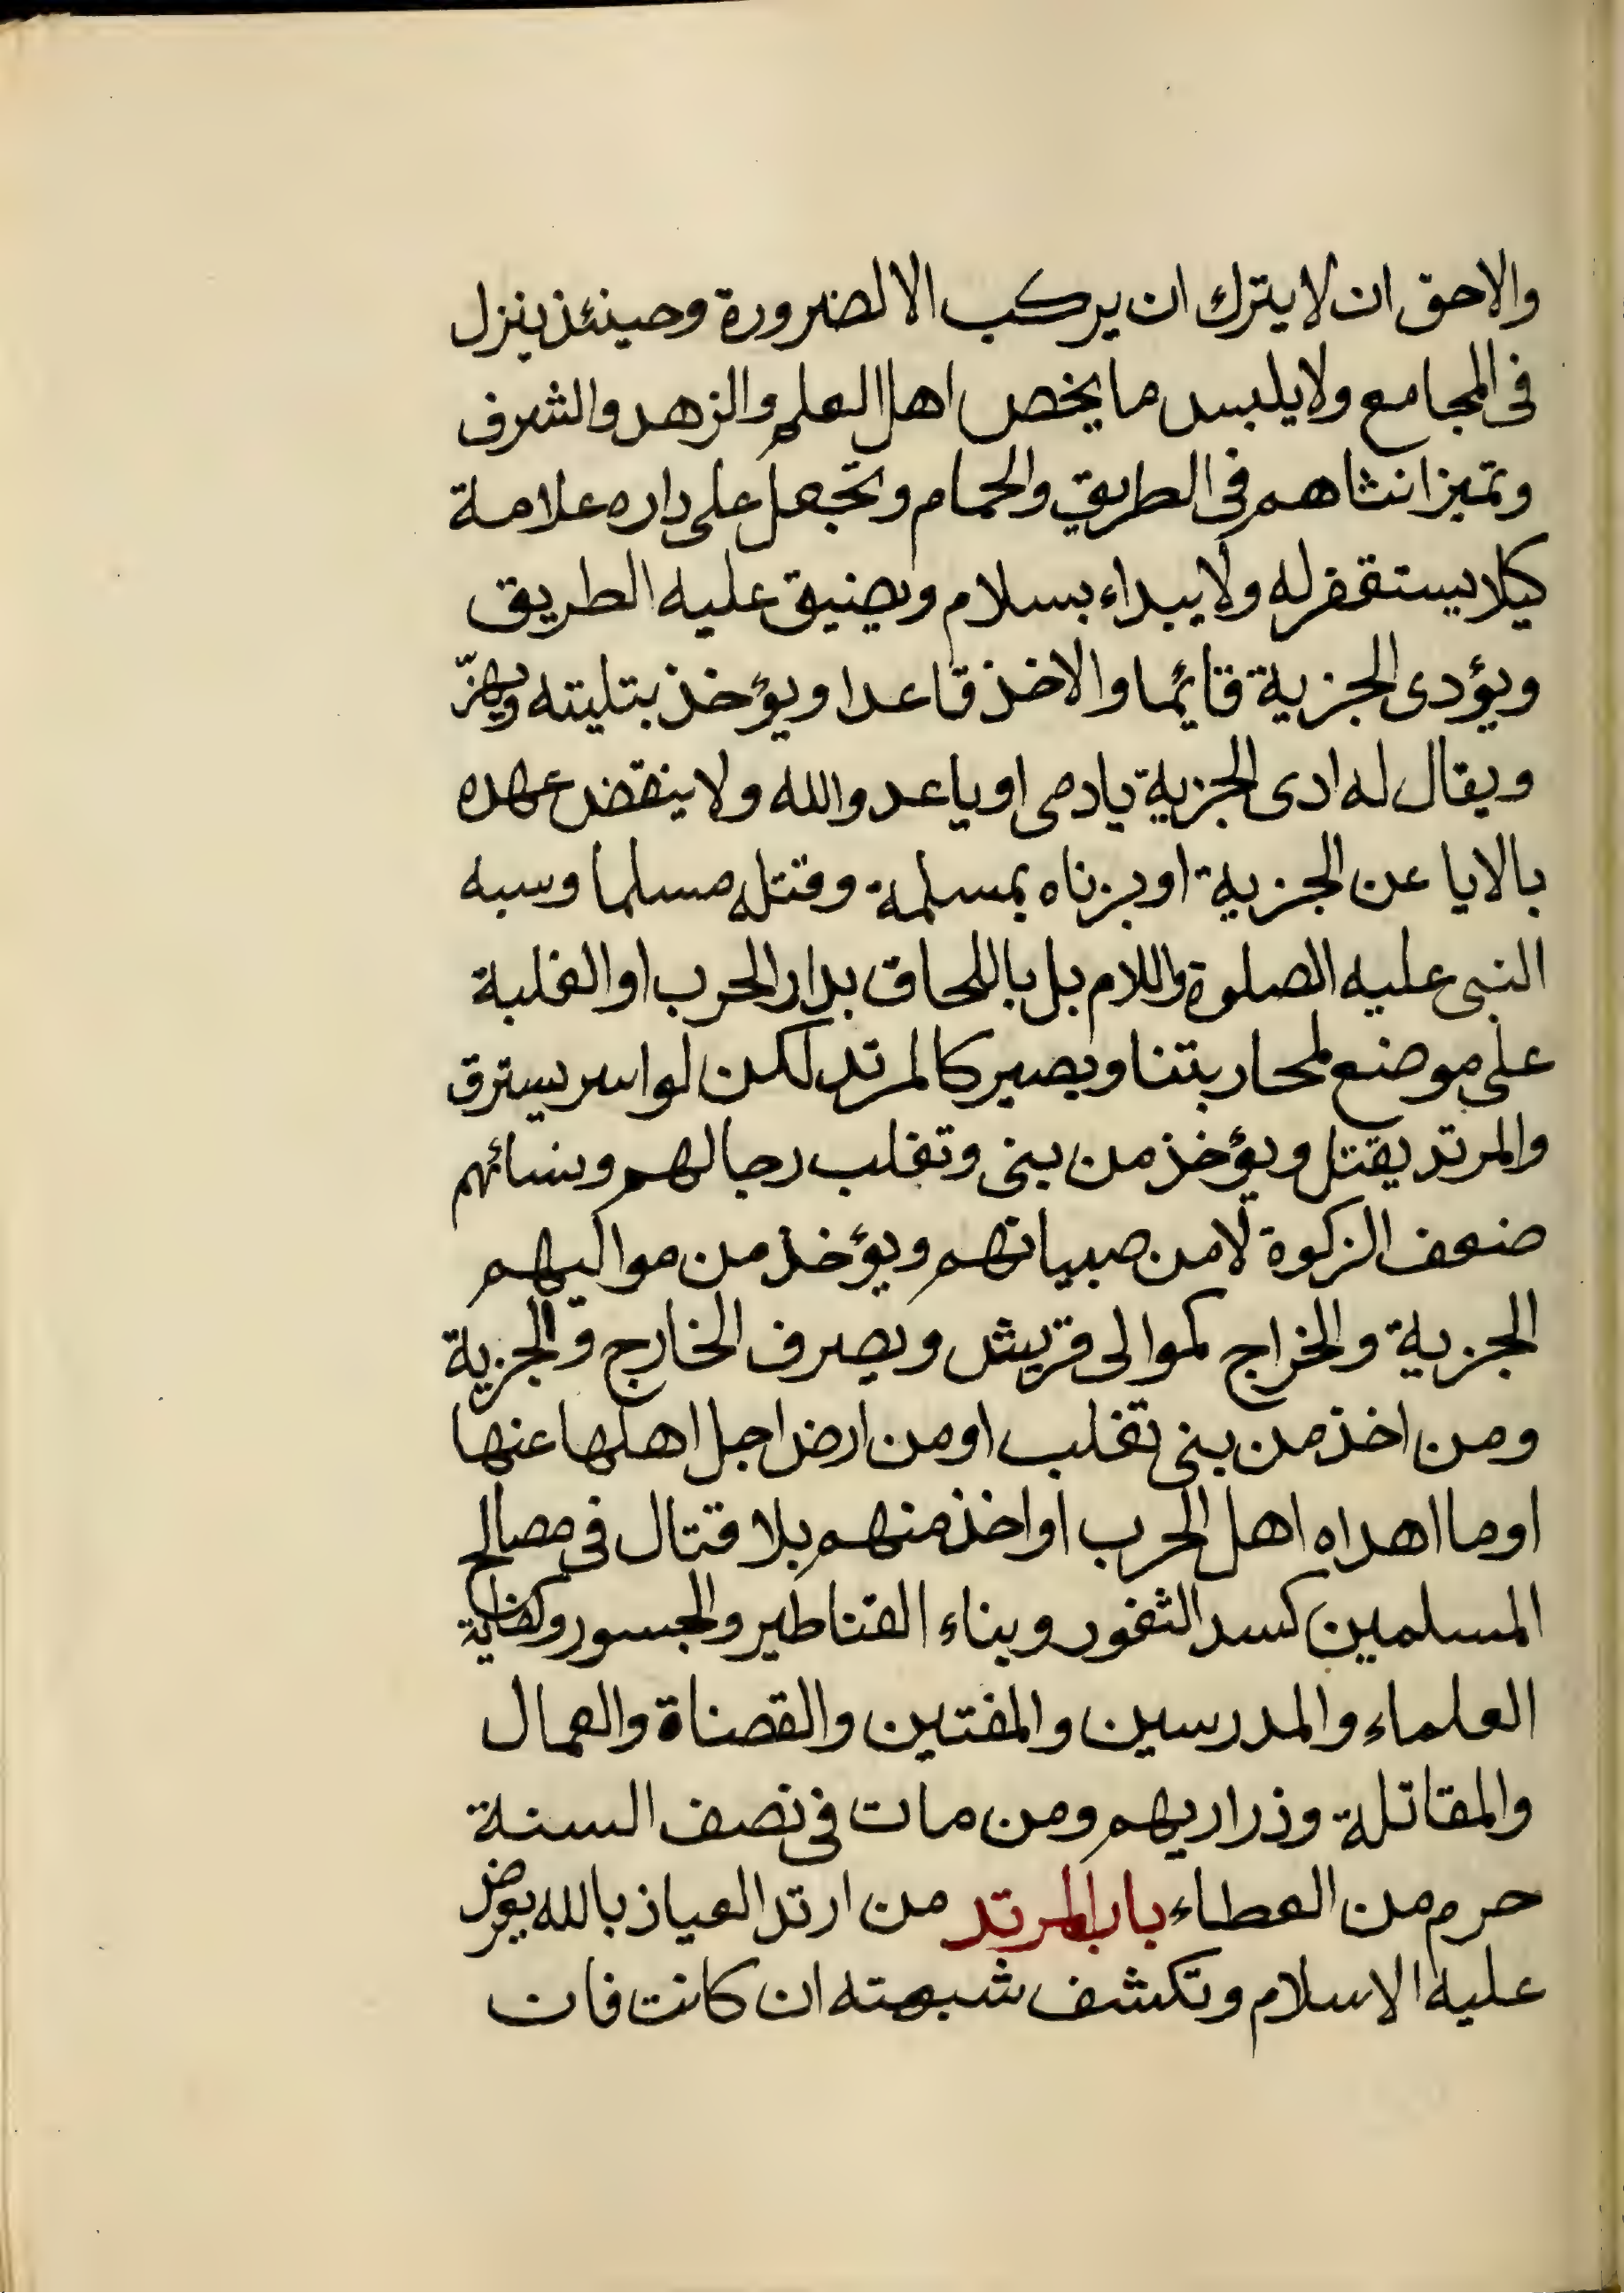 والاحق ان لا يترك ان يركب الا لضرورة وحينئذ ينزل
فى المجامع ولا يلبس ما يخص اهل العلم والزهد والشرف
وتميز انثاهم فى الطريق والحمام وتجعل على داره علامة
كيلا يستقفر له ولا يبداء بسلام ويضيق عليه الطريق
ويؤدى الجزية قائما والاخذ قاعدا ويؤخذ بتليته ويهزّ
ويقال له ادى الجزية يادمى او يا عدو الله ولا ينقض عهده
بالايا عن الجزية او بزناه بمسلمة وقتله مسلما وسبه
النبى عليه الصلوة واللام بل باللحاق بدار الحرب او الغلبة
على موضع لمحاربتنا ويصير كالمرتد لكن لو اسر يسترق
والمرتد يقتل ويؤخذ من بنى وتغلب رجالهم ونسائهم
ضعف الزكوة لا من صبيانهم ويؤخذ من مواليهم
الجزية والخراج كموالى قريش ويصرف الخارج والجزية
ومن اخذ من بنى تغلب او من ارض اجل اهلها عنها
او ما اهداه اهل الحرب او اخذ منهم بلا قتال فى مصالح
المسلمين كسد الثغور وبناء القناطير والجسور وكفاية
العلماء والمدرسين والمفتين والقضاة والعمال
والمقاتلة وذراريهم ومن مات فى نصف السنة
حرم من العطاء باب المرتد من ارتد العياذ بالله يعرض
عليه الاسلام وتكشف شبهته ان كانت فان